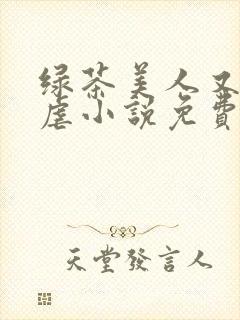 绿茶美人又
虐小說免費
天堂發言人